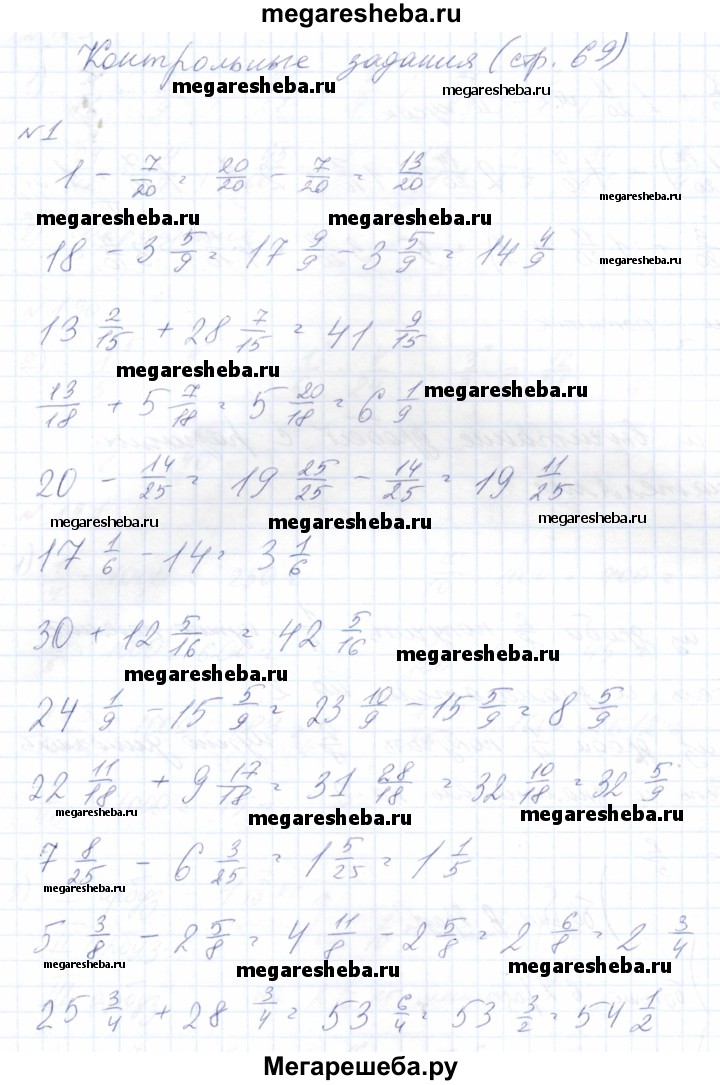 megaresheba.ru
Контрольные задания (стр. 69)
megaresheba.ru megaresheba.ru
№1
1 - 7/20 = 20/20 - 7/20 = 13/20
megaresheba.ru
megaresheba.ru megaresheba.ru
18 - 3 5/9 = 17 9/9 - 3 5/9 = 14 4/9
megaresheba.ru
13 2/15 + 28 7/15 = 41 9/15
megaresheba.ru
13/18 + 5 7/18 = 5 20/18 = 6 1/9
megaresheba.ru
20 - 14/25 = 19 25/25 - 14/25 = 19 11/25
megaresheba.ru megaresheba.ru megaresheba.ru
17 1/6 - 14 = 3 1/6
30 + 12 5/16 = 42 5/16
megaresheba.ru megaresheba.ru
24 1/9 - 15 5/9 = 23 10/9 - 15 5/9 = 8 5/9
22 11/18 + 9 17/18 = 31 28/18 = 32 10/18 = 32 5/9
megaresheba.ru megaresheba.ru megaresheba.ru
7 8/25 - 6 3/25 = 1 5/25 = 1 1/5
megaresheba.ru
5 3/8 - 2 5/8 = 4 11/8 - 2 5/8 = 2 6/8 = 2 3/4
megaresheba.ru megaresheba.ru megaresheba.ru
25 3/4 + 28 3/4 = 53 6/4 = 53 3/2 = 54 1/2
Мегарешеба.ру